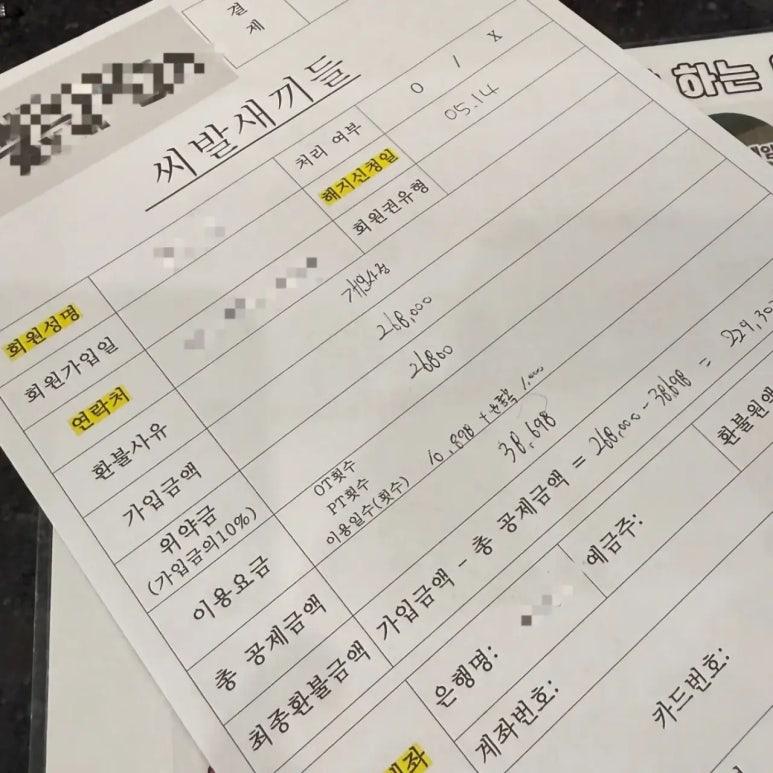 결제
씨발새끼들
처리 여부 O / X
해지신청일 05.14
회원권유형
회원성명
회원가입일
연락처
환불사유 개인사정
가입금액 268,000
위약금 26800
(가입금의10%)
이용요금
OT횟수
PT횟수
이용일수(횟수) 10,898 + 운동복 1,000
총 공제금액 38,698
최종환불금액 가입금액 - 총 공제금액 = 268,000 - 38,698 = 229,30
환불원액
은행명:
예금주:
계좌번호:
카드번호:
하는